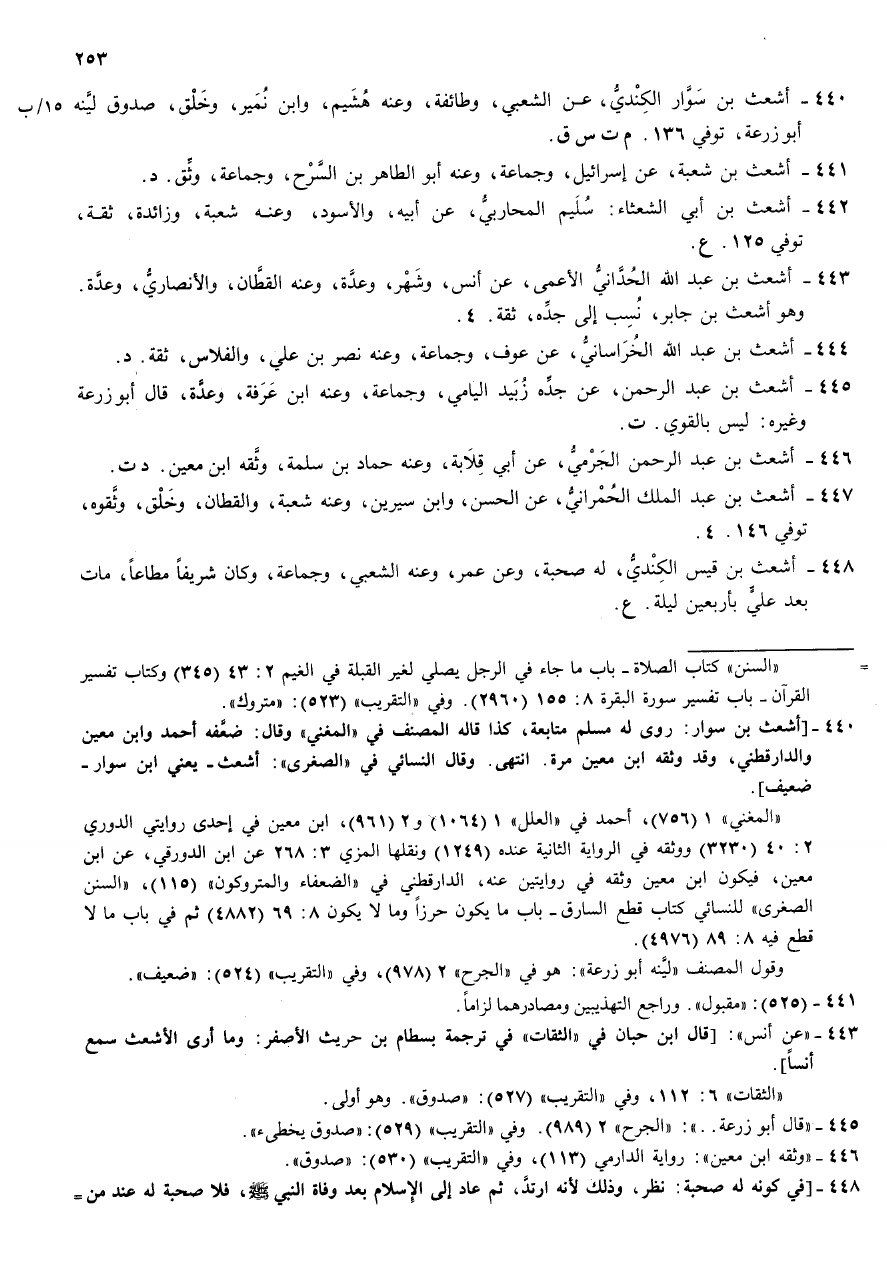 ٢٥٣
٤٤٠ ـ أشعث بن سَوَّار الكِنْديُّ، عـن الشعبي، وطائفة، وعنه هُشَيم، وابن نُمَير، وخَلْق، صدوق ليَّنه ١٥/ب
أبو زرعة، توفي ١٣٦. م ت س ق.
٤٤١ ـ أشعث بن شعبة، عن إسرائيل، وجماعة، وعنه أبو الطاهر بن السَّرْح، وجماعة، وثِّق. د.
٤٤٢ ـ أشعث بن أبي الشعثاء: سُلَيم المحاربيُّ، عن أبيه، والأسود، وعنـه شعبة، وزائدة، ثقـة،
توفي ١٢٥. ع.
٤٤٣ ـ أشعث بن عبد الله الحُدَّانيُّ الأعمى، عن أنس، وشَهْر، وعدَّة، وعنه القطَّان، والأنصاريُّ، وعدَّة.
وهو أشعث بن جابر، نُسِب إلى جدِّه، ثقة. ٤.
٤٤٤ ـ أشعث بن عبد الله الخُرَاسانيُّ، عن عوف، وجماعة، وعنه نصر بن علي، والفلاس، ثقة. د.
٤٤٥ ـ أشعث بن عبد الرحمن، عن جدِّه زُبَيد اليامي، وجماعة، وعنه ابن عَرَفة، وعدَّة، قال أبو زرعة
وغيره: ليس بالقوي. ت.
٤٤٦ ـ أشعث بن عبد الرحمن الجَرْميُّ، عن أبي قِلَابة، وعنه حماد بن سلمة، وثَّقه ابن معين. د ت.
٤٤٧ ـ أشعث بن عبد الملك الحُمْرانيُّ، عن الحسن، وابن سيرين، وعنه شعبة، والقطان، وخَلْق، وثَّقوه،
توفي ١٤٦. ٤.
٤٤٨ ـ أشعث بن قيس الكِنْديُّ، له صحبة، وعن عمر، وعنه الشعبي، وجماعة، وكان شريفاً مطاعاً، مات
بعد عليٍّ بأربعين ليلة. ع.
= «السنن» كتاب الصلاة ـ باب ما جاء في الرجل يصلي لغير القبلة في الغيم ٢: ٤٣ (٣٤٥) وكتاب تفسير
القرآن ـ باب تفسير سورة البقرة ٨: ١٥٥ (٢٩٦٠). وفي «التقريب» (٥٢٣): «متروك».
٤٤٠ ـ [أشعث بن سوار: روى له مسلم متابعة، كذا قاله المصنف في «المغني» وقال: ضعَّفه أحمد وابن معين
والدارقطني، وقد وثقه ابن معين مرة. انتهى. وقال النسائي في «الصغرى»: أشعث ـ يعني ابن سوار ـ
ضعيف].
«المغني» ١ (٧٥٦)، أحمد في «العلل» ١ (١٠٦٤) و٢ (٩٦١)، ابن معين في إحدى روايتي الدوري
٢: ٤٠ (٣٢٣٠) ووثقه في الرواية الثانية عنده (١٢٤٩) ونقلها المزي ٣: ٢٦٨ عن ابن الدورقي، عن ابن
معين، فيكون ابن معين وثقه في روايتين عنه، الدارقطني في «الضعفاء والمتروكون» (١١٥)، «السنن
الصغرى» للنسائي كتاب قطع السارق ـ باب ما يكون حرزاً وما لا يكون ٨: ٦٩ (٤٨٨٢) ثم في باب ما لا
قطع فيه ٨: ٨٩ (٤٩٧٦).
وقول المصنف «ليَّنه أبو زرعة»: هو في «الجرح» ٢ (٩٧٨)، وفي «التقريب» (٥٢٤): «ضعيف».
٤٤١ ـ (٥٢٥): «مقبول». وراجع التهذيبين ومصادرهما لزاماً.
٤٤٣ ـ «عن أنس»: [قال ابن حبان في «الثقات» في ترجمة بسطام بن حريث الأصفر: وما أرى الأشعث سمع
أنساً].
«الثقات» ٦: ١١٢، وفي «التقريب» (٥٢٧): «صدوق». وهو أولى.
٤٤٥ ـ «قال أبو زرعة..»: «الجرح» ٢ (٩٨٩). وفي «التقريب» (٥٢٩): «صدوق يخطىء».
٤٤٦ ـ «وثقه ابن معين»: رواية الدارمي (١١٣)، وفي «التقريب» (٥٣٠): «صدوق».
٤٤٨ ـ [في كونه له صحبة: نظر، وذلك لأنه ارتدَّ، ثم عاد إلى الإسلام بعد وفاة النبي ﷺ، فلا صحبة له عند من =